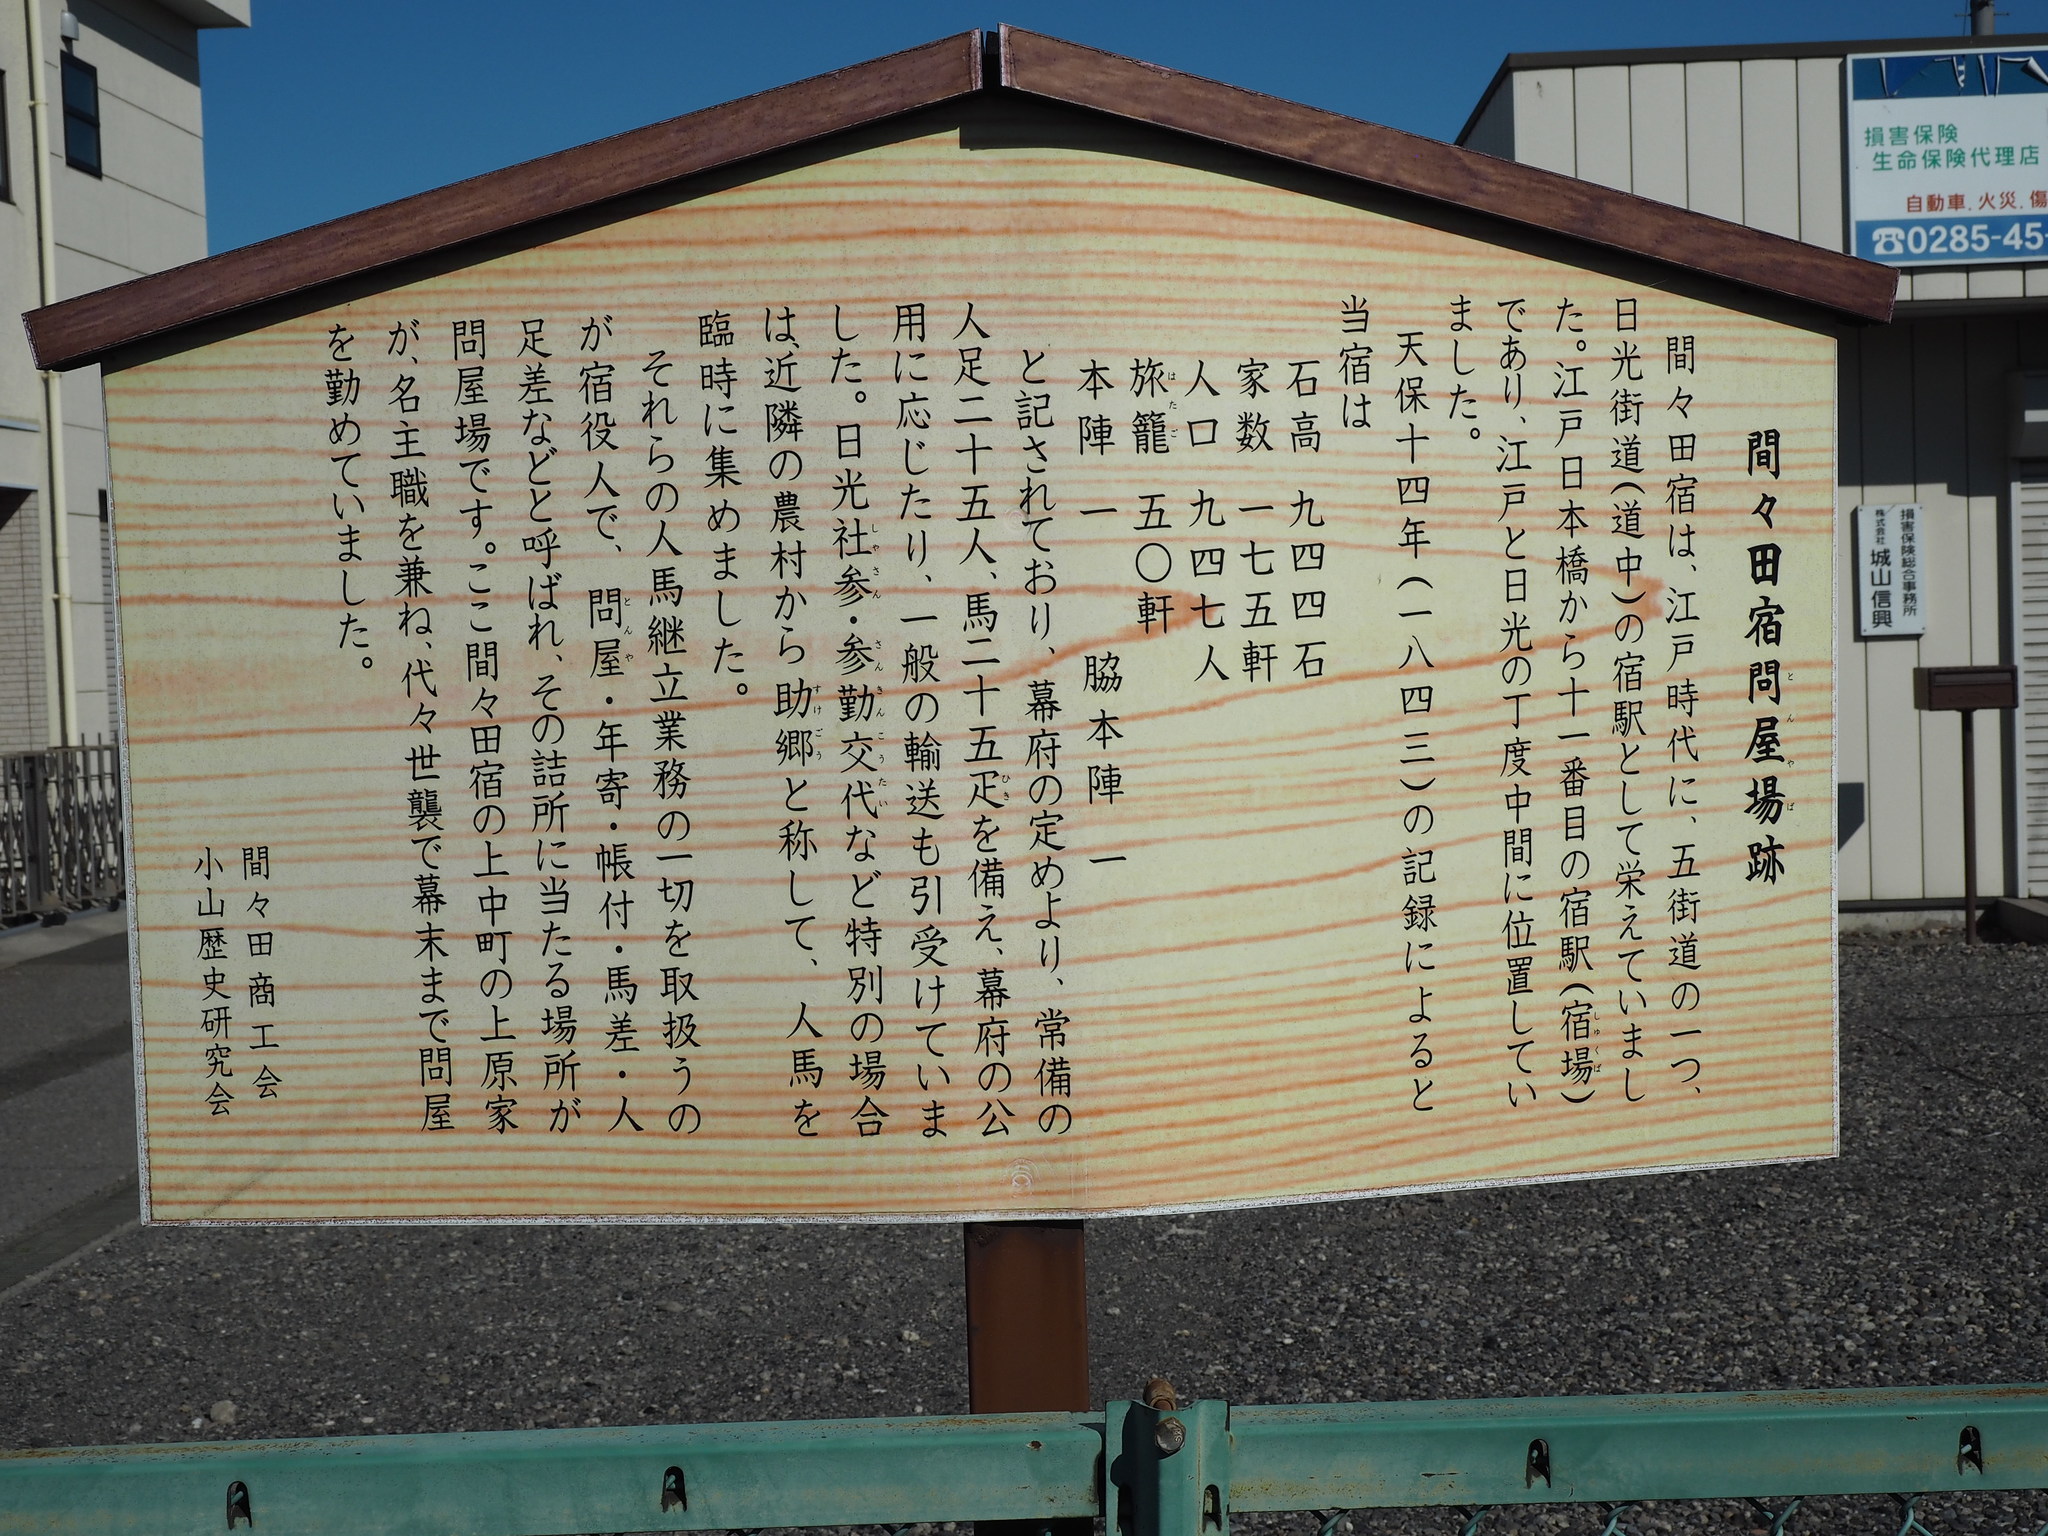 間々田宿問屋場跡
間々田宿は、江戸時代に、五街道の一つ、
日光街道(道中)の宿駅として栄えていまし
た。江戸日本橋から十一番目の宿駅(宿場)
であり、江戸と日光の丁度中間に位置してい
ました。
天保十四年(一八四三)の記録によると
当宿は
石高 九四四石
家数 一七五軒
人口 九四七人
旅籠 五〇軒
本陣 一 脇本陣 一
と記されており、幕府の定めより、常備の
人足二十五人、馬二十五疋を備え、幕府の公
用に応じたり、一般の輸送も引受けていま
した。日光社参・参勤交代など特別の場合
は、近隣の農村から助郷と称して、人馬を
臨時に集めました。
それらの人馬継立業務の一切を取扱うの
が宿役人で、問屋・年寄・帳付・馬差・人
足差などと呼ばれ、その詰所に当たる場所が
問屋場です。ここ間々田宿の上中町の上原家
が、名主職を兼ね、代々世襲で幕末まで問屋
を勤めていました。
間々田商工会
小山歴史研究会
損害保険
生命保険代理店
自動車.火災.傷
☎0285-45-
損害保険総合事務所
株式会社 城山信興